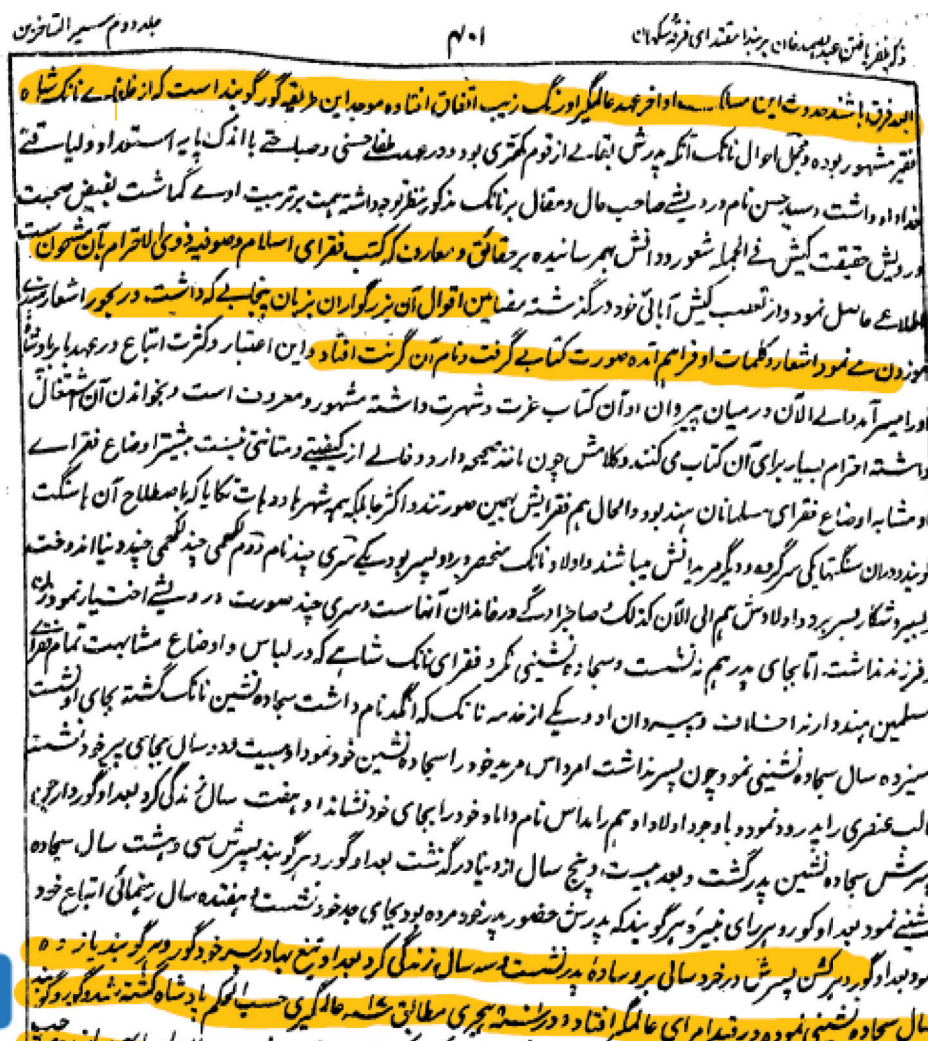 ذکر ظفر یافتن عبدالصمد خان بر بندا مقتدای فرقه سکهان ۴۰۱ جلد دوم سیر المتاخرین
البعد فرق باشند حدوث این اواخر عهد عالمگیر اورنگ زیب اتفاق افتاده موجد این طریقه گورگوبند است که از خلفاے نانک شاه
فقیر مشهور بوده و مجمل احوال نانک آنکه پدرش بقالے از قوم کهتری بود و در عهد طفلے حسنی و صباحتے با اندک پایه استعداد و لیاقتے
خداداد داشت و سید حسن نام درویشے صاحب حال و مقال بر نانک مذکور نظر توجه داشته همت بر تربیت اوے گماشت بفیض صحبت
درویش حقیقت کیش فے الجمله شعور و دانش بهمرسانیده بر حقائق و معارف که کتب فقرای اسلام و صوفیه ذوی الاحترام بآن مشحون ست
اطلاعے حاصل نمود و از تعصب کیش آبائی خود درگذشته مضامین اقوال آن بزرگواران بزبان پنجابے که داشت در بحور اشعار هندے
موزون مے نمود اشعار و کلمات او فراهم آمده صورت کتابے گرفت و نام آن گرنت افتاد و این اعتبار و کثرت اتباع در عهد بابر پادشاه
اورا میسر آمد و الے الآن درمیان پیروان او آن کتاب عزت و شهرت داشته مشهور و معروف است و بخواندن آن اشتغال
داشته احترام بسیار برای آن کتاب می کنند و کلامش چون ماخذ صحیحے دارد و خالے از کیفیتے و متانتی نیست بیشتر اوضاع فقراے
او مشابه اوضاع فقرای مسلمانان هند بود والحال هم فقرایش بهمین صورتند و اکثر جا بلکه همه شهرها و دهات تکایا که باصطلاح آنها سنگت
گویند و دران سنگتها یکی سرگروه و دیگر مریدانش میباشند و اولاد نانک منحصر بر دو پسر بود یکے سری چند نام دوم لکهمی چند لکهمی چند دنیا اندوخت
و بسیر و شکار بسر برد و اولادش هم الی الآن کذلک صاحبزادگے در خاندان آنهاست و سری چند صورت درویشے اختیار نموده زن
و فرزند نداشت اما بجای پدر هم نه نشست و سجاده نشینی نکرد فقرای نانک شاهے که در لباس و اوضاع مشابهت تمام بفقراے
مسلمین هند دارند اخلاف و پیروان او و یکے از خدمه نانک که انگد نام داشت سجاده نشین نانک گشته بجای او نشست
سیزده سال سجاده نشینی نمود چون پسر نداشت امرداس مرید خود را سجاده نشین خود نمود او بیست و دو سال بجای پیر خود نشسته
قالب عنصری را پدرود نمود و با وجود اولاد او هم رامداس نام داماد خود را بجای خود نشاند او هفت سال زندگی کرد بعد او گورو ارجن
پسرش سجاده نشین پدر گشت و بعد بیست و پنج سال از دنیا درگذشت بعد او گورو هرگوبند پسرش سی و هشت سال سجاده
نشینے نمود بعد او گورو هررای نبیره هرگوبند که پدرش حضور پدر خود مرده بود بجای جد خود نشست هفده سال رهنمائی اتباع خود
نمود بعد او گورو هرکشن پسرش در خرد سالی بر وساده پدر نشست و سه سال زندگی کرد بعد او تیغ بهادر پسر خود گورو هرگوبند یازده
سال سجاده نشینی نموده در قید امرای عالمگیر افتاد و در هجری مطابق عالمگیری حسب الحکم پادشاه کشته شد و گورو گوبند